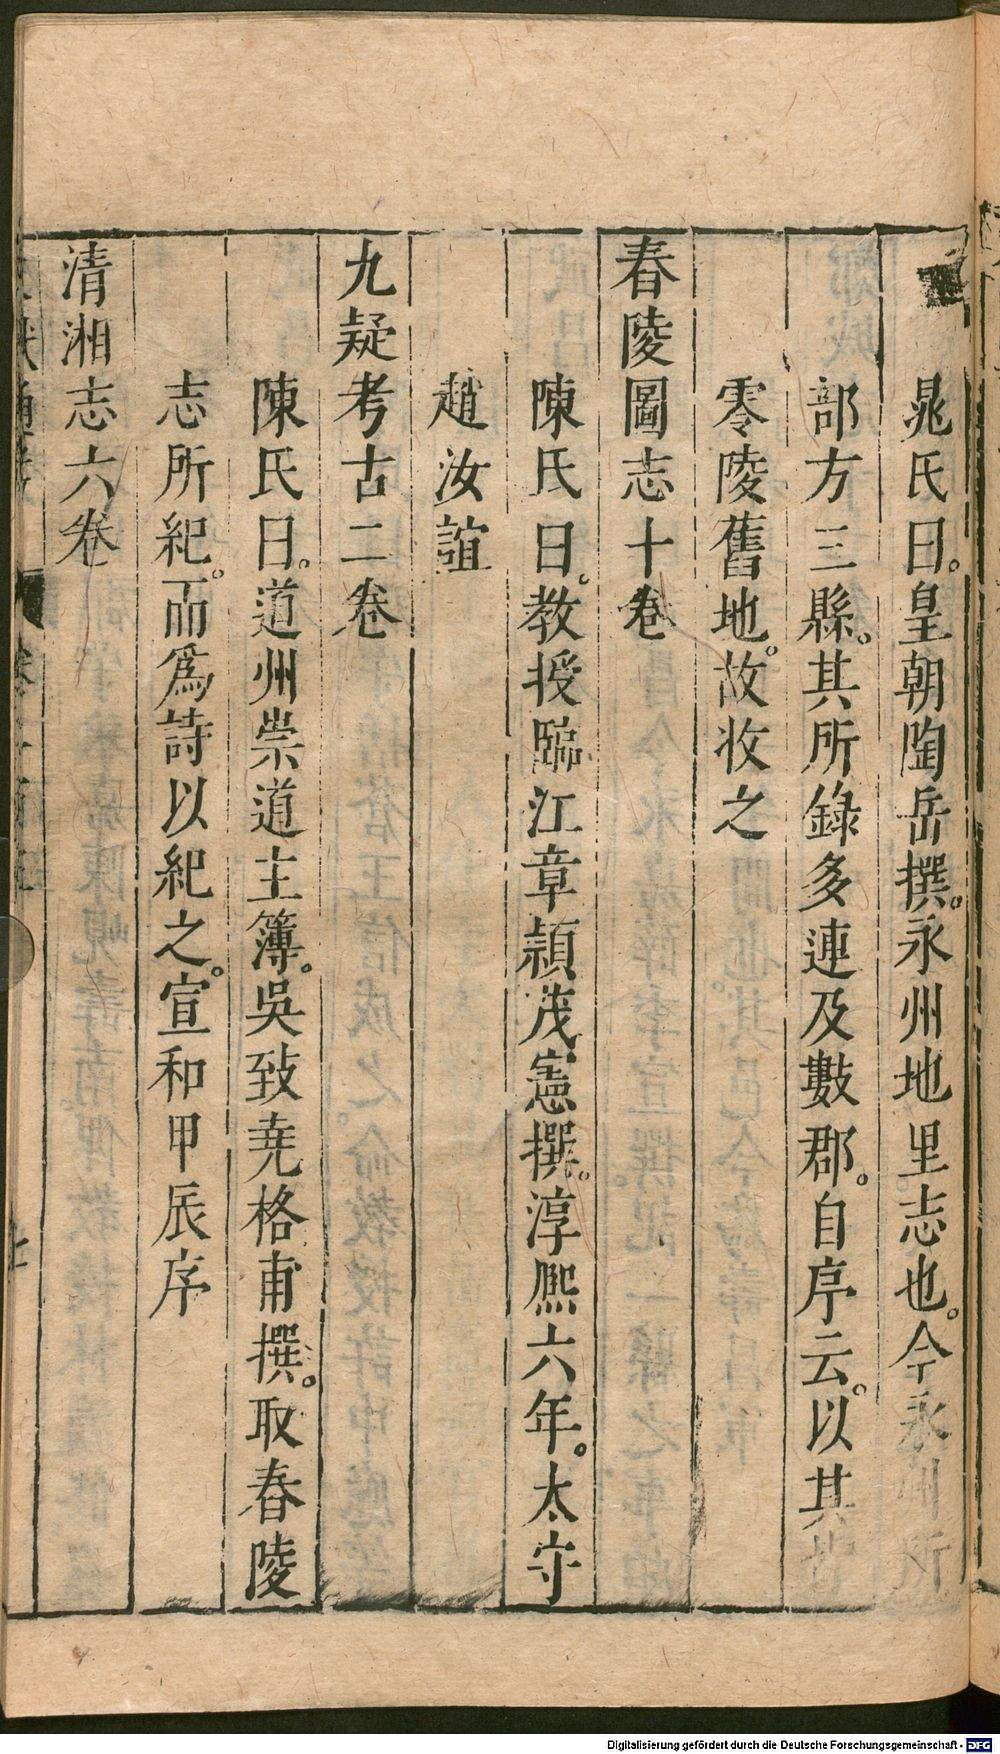 晁氏曰。皇朝陶岳撰。永州地里志也。今永州所
部方三縣。其所錄多連及數郡。自序云。以其皆
零陵舊地。故收之
舂陵圖志十卷
陳氏曰。教授臨江章頴茂憲撰。淳熈六年。太守
趙汝誼
九疑考古二卷
陳氏曰。道州崇道主簿。吳致堯格甫撰。取舂陵
志所紀。而爲詩以紀之。宣和甲辰序
清湘志六卷
Digitalisierung gefördert durch die Deutsche Forschungsgemeinschaft - DFG